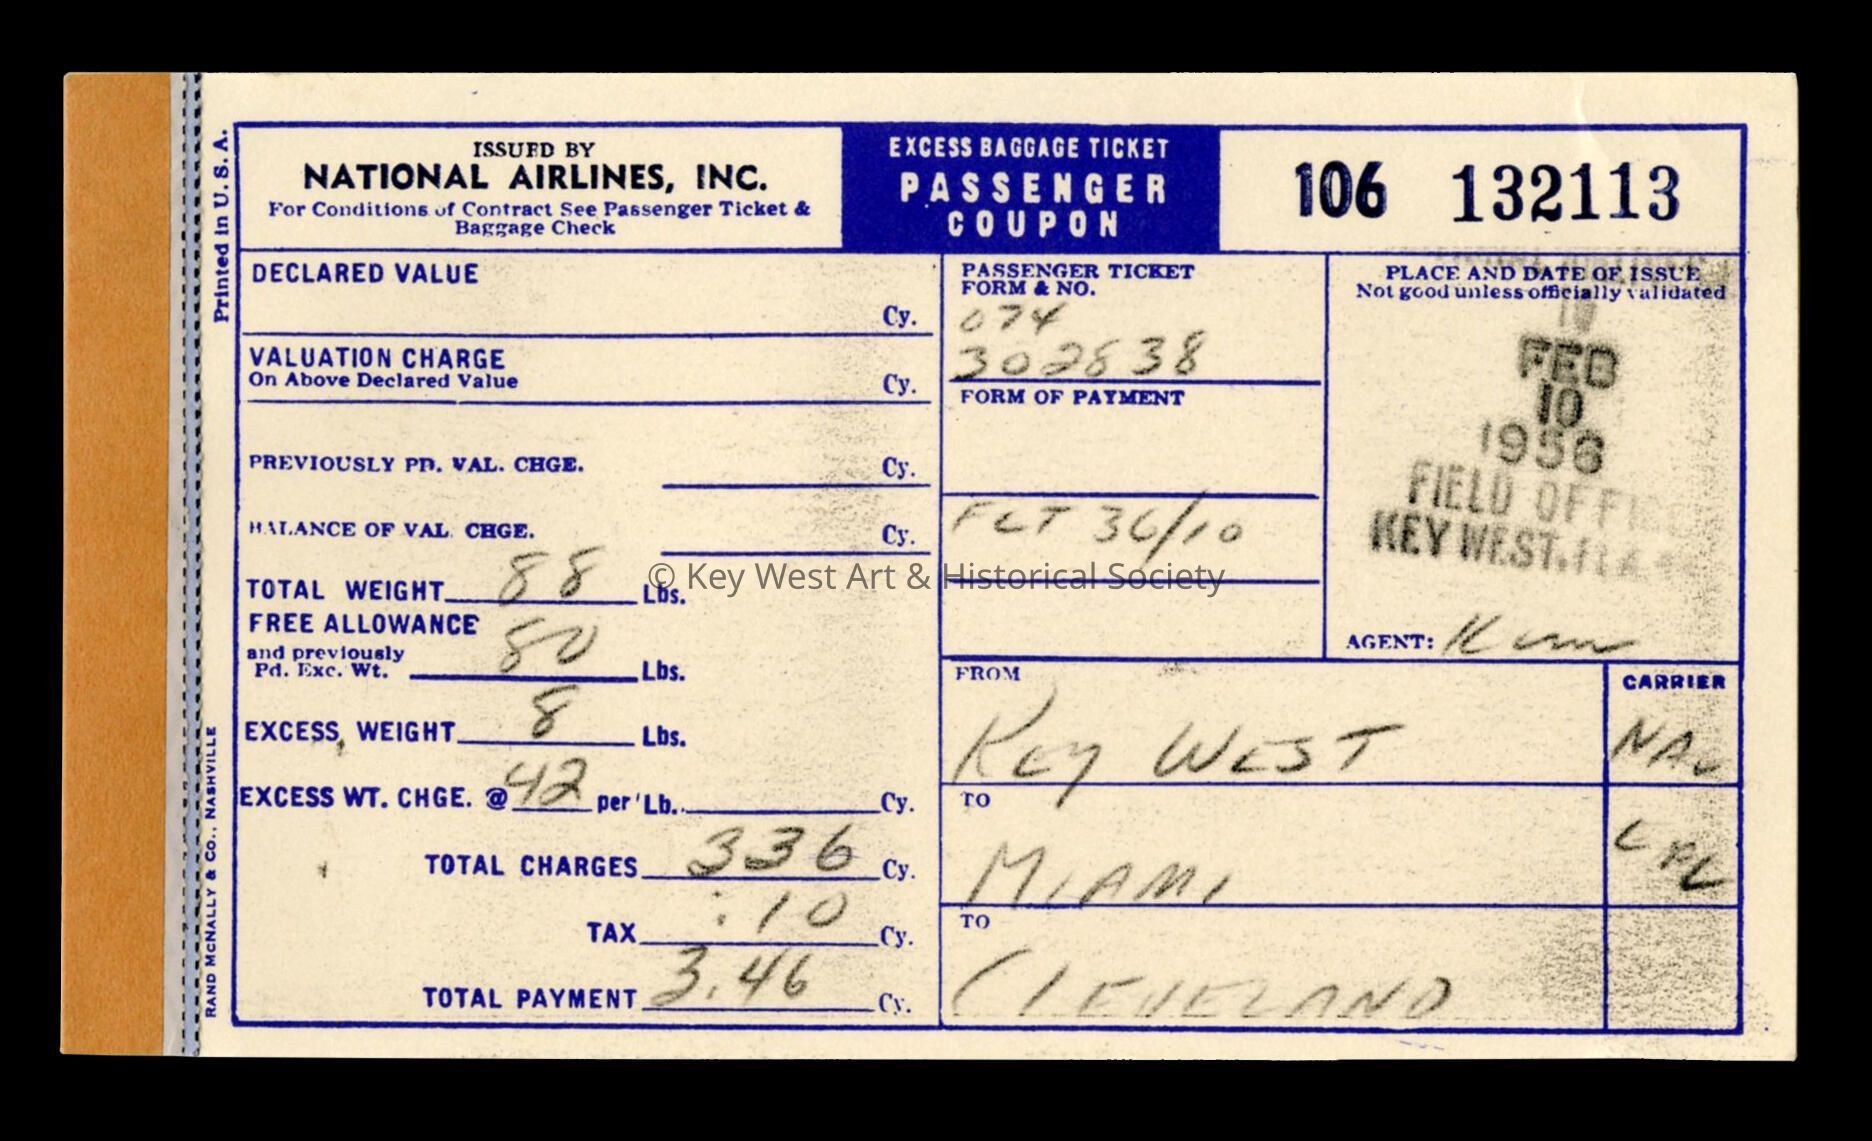 Printed in U. S. A.
RAND McNALLY & CO., NASHVILLE
ISSUED BY
NATIONAL AIRLINES, INC.
For Conditions of Contract See Passenger Ticket &
Baggage Check
EXCESS BAGGAGE TICKET
PASSENGER
COUPON
106 132113
DECLARED VALUE
Cy.
VALUATION CHARGE
On Above Declared Value
Cy.
PREVIOUSLY PD. VAL. CHGE.
Cy.
BALANCE OF VAL. CHGE.
Cy.
TOTAL WEIGHT 88 Lbs.
FREE ALLOWANCE
and previously
Pd. Exc. Wt. 80 Lbs.
EXCESS WEIGHT 8 Lbs.
EXCESS WT. CHGE. @ 42 per Lb. Cy.
TOTAL CHARGES 336 Cy.
TAX .10 Cy.
TOTAL PAYMENT 3.46 Cy.
PASSENGER TICKET
FORM & NO.
074
302838
FORM OF PAYMENT
FLT 36/10
PLACE AND DATE OF ISSUE
Not good unless officially validated
FEB
10
1956
FIELD OFFIC
KEY WEST, FLA.
AGENT:
FROM
KEY WEST
CARRIER
NAL
TO
MIAMI
TO
CLEVELAND
© Key West Art & Historical Society